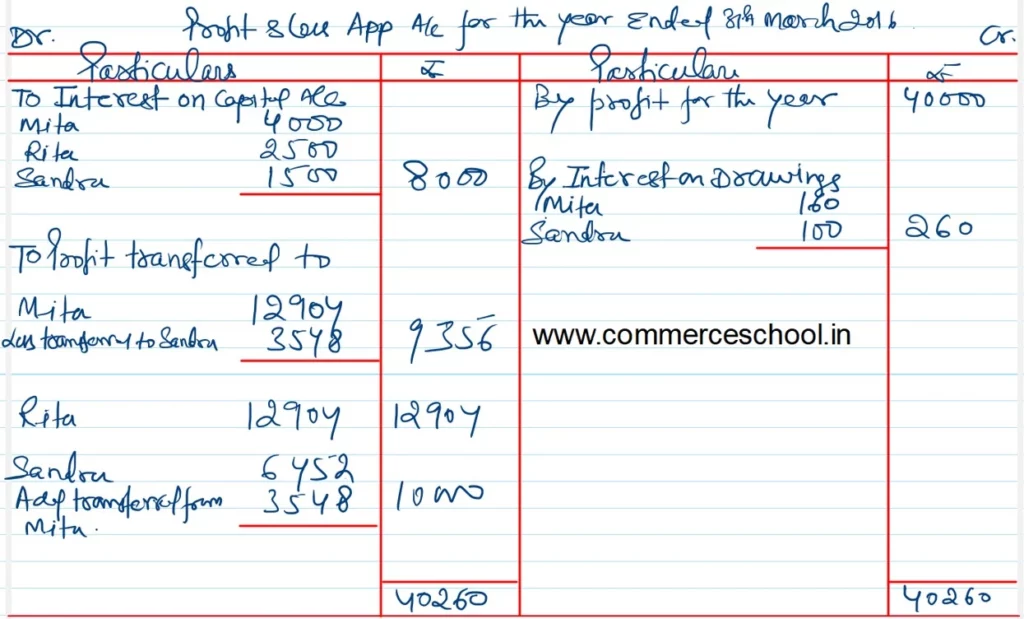 Profit & Loss App A/c for the year Ended 31th March 2016
Dr.
Cr.
Particulars ₹ Particulars ₹
To Interest on Capital A/cs
Mita 4000
Rita 2500
Sandra 1500 8000
By profit for the year 40000
By Interest on Drawings
Mita 160
Sandra 100 260
To Profit transferred to
Mita 12904
Less transferry to Sandra 3548 9356
www.commerceschool.in
Rita 12904 12904
Sandra 6452
Add transferred from 3548 10000
Mita.
40260 40260